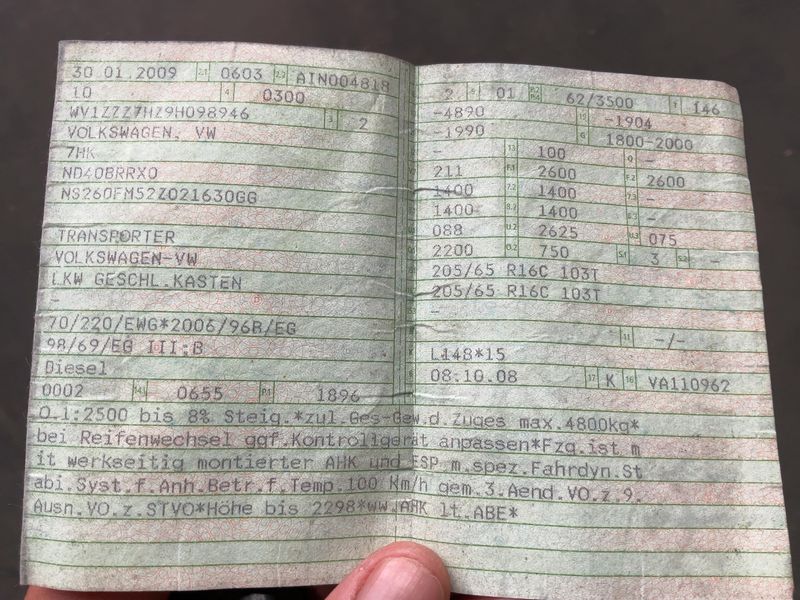 30.01.2009 2.1 0603 2.2 AIN004818
10 4 0300
WV1ZZZ7HZ9H098946 3 2
VOLKSWAGEN, VW
7HK
ND40BRRX0
NS260FM52Z021630GG
TRANSPORTER
VOLKSWAGEN-VW
LKW GESCHL.KASTEN
-
70/220/EWG*2006/96B/EG
98/69/EG III;B
Diesel
0002 14.1 0655 P.1 1896
2 9 01 P.2 P.4 62/3500 T 146
-4890 -1904
-1990 G 1800-2000
- 13 100 Q -
211 F.1 2600 F.2 2600
1400 7.2 1400 7.3 -
1400 8.2 1400 8.3 -
088 U.2 2625 U.3 075
2200 O.2 750 S.1 3 S.2 -
205/65 R16C 103T
205/65 R16C 103T
-
11 -/-
L148*15
08.10.08 17 K 16 VA110962
O.1:2500 bis 8% Steig.*zul.Ges-Gew.d.Zuges max.4800kg*
bei Reifenwechsel ggf.Kontrollgerät anpassen*Fzg.ist m
it werkseitig montierter AHK und ESP m.spez.Fahrdyn.St
abi.Syst.f.Anh.Betr.f.Temp.100 Km/h gem.3.Aend.VO.z.9.
Ausn.VO.z.STVO*Höhe bis 2298*ww.AHK lt.ABE*